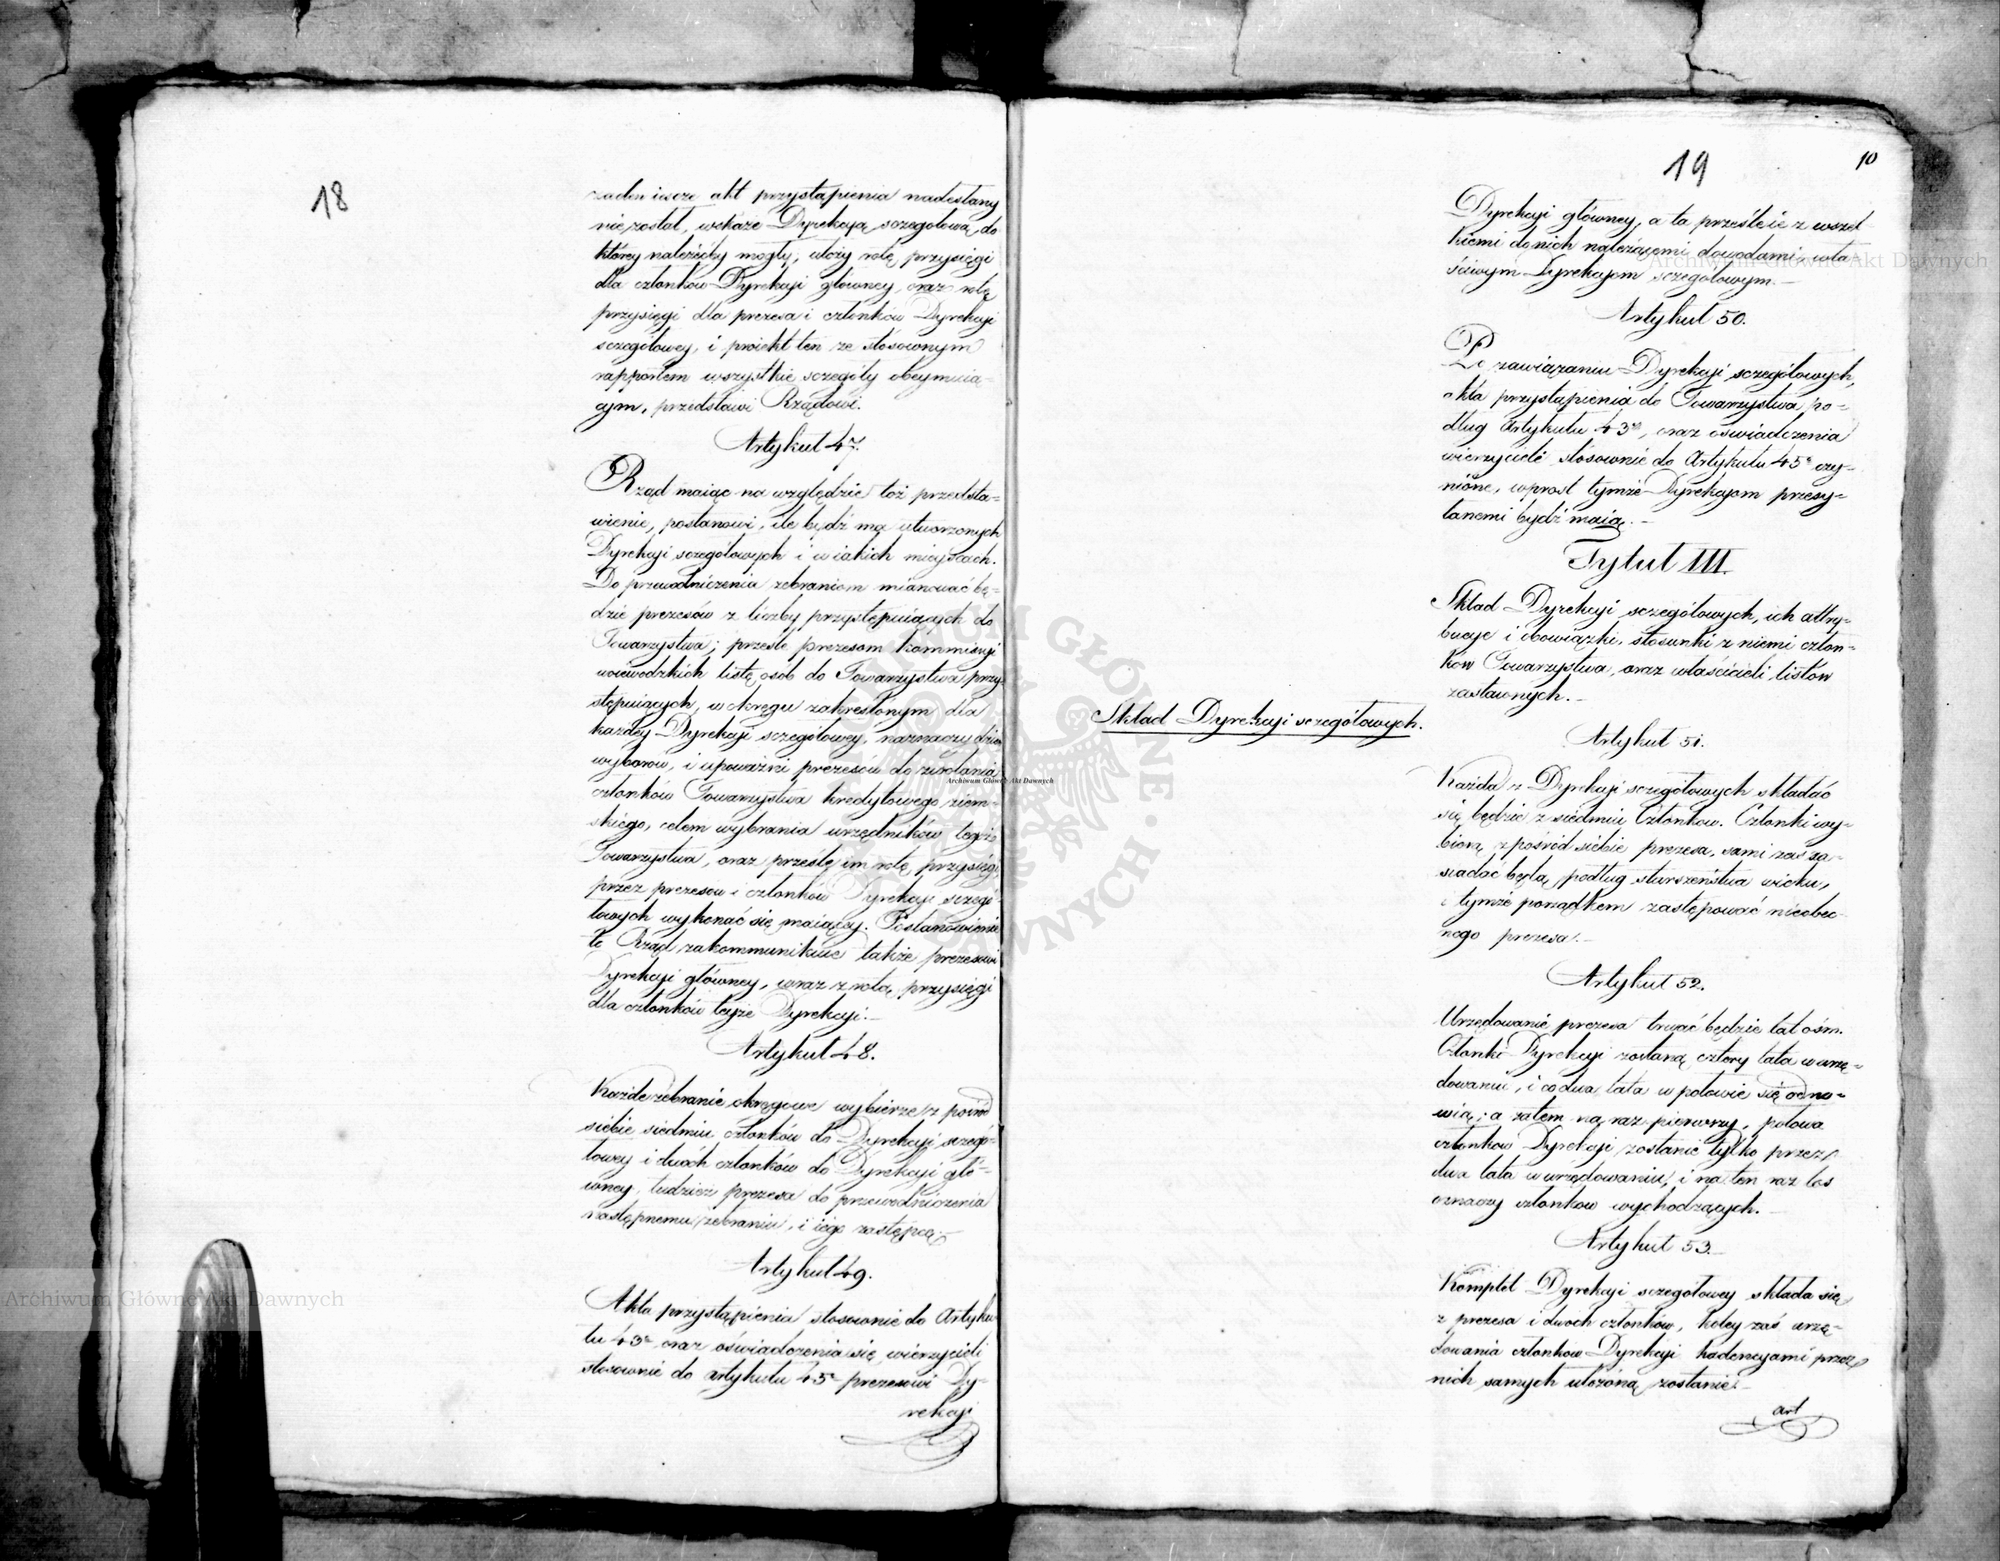 18
żaden ieszcze akt przystąpienia nadesłany
nie został, wskaże Dyrekcyą szczegółową, do
którey należećby mogły; ułoży rotę przysięgi
dla członków Dyrekcyi główney, oraz rotę
przysięgi dla prezesa i członków Dyrekcyi
szczegółowey, i proiekt ten ze stosownym
rapportem wszystkie szczegóły obeymuią-
cym, przedstawi Rządowi.
Artykuł 47.
Rząd maiąc na względzie toż przedsta-
wienie, postanowi, ile będź ma utworzonych
Dyrekcyi szczegółowych i w iakich mieyscach.
Do przewodniczenia zebraniom mianować bę-
dzie prezesów z liczby przystępuiących do
Towarzystwa; prześle prezesom Kommissyi
woiewodzkich listę osób do Towarzystwa przy-
stępuiących, w okręgu zakreślonym dla
każdey Dyrekcyi szczegółowey, naznaczy dzień
wyborów, i upoważni prezesów do zwołania
członków Towarzystwa kredytowego ziem-
skiego, celem wybrania urzędników tegoż
Towarzystwa, oraz prześle im rotę przysięgi
przez prezesów i członków Dyrekcyi szczegó-
łowych wykonać się maiącey. Postanowienie
to Rząd zakommunikuie także prezesowi
Dyrekcyi główney, wraz z rotą przysięgi
dla członków teyże Dyrekcyi.
Artykuł 48.
Każde zebranie okręgowe wybierze z pośród
siebie siedmiu członków do Dyrekcyi szczegó-
łowey i dwóch członków do Dyrekcyi głó-
wney, tudzież prezesa do przewodniczenia
następnemu zebraniu, i iego zastępcę.
Artykuł 49.
Akta przystąpienia stosownie do Artyku-
łu 43º oraz oświadczenia się wierzycieli
stosownie do artykułu 45º prezesowi Dy-
rekcyi
19
10
Dyrekcyi główney, a ta prześle ie z wszel-
kiemi do nich należącemi dowodami, wła-
ściwym Dyrekcyom szczegółowym.
Artykuł 50.
Po zawiązaniu Dyrekcyi szczegółowych,
akta przystąpienia do Towarzystwa po-
dług Artykułu 43º, oraz oświadczenia
wierzycieli stosownie do Artykułu 45º czy-
nione, wprost tymże Dyrekcyom przesy-
łanemi bydź maią.
Tytuł III.
Skład Dyrekcyi szczegółowych, ich attry-
bucye i obowiązki, stosunki z niemi człon-
ków Towarzystwa, oraz właścicieli listów
zastawnych.
Skład Dyrekcyi szczegółowych.
Artykuł 51.
Każda z Dyrekcyi szczegółowych składać
się będzie z siedmiu Członków. Członki wy-
biorą z pośród siebie prezesa, sami zaś za-
siadać będą podług starszeństwa wieku,
i tymże porządkem zastępować nieobec-
nego prezesa.
Artykuł 52.
Urzędowanie prezesa trwać będzie lat ośm.
Członki Dyrekcyi zostaną cztery lata w urzę-
dowaniu, i co dwa lata w połowie się odno-
wią; a zatem na raz pierwszy, połowa
członków Dyrekcyi zostanie tylko przez
dwa lata w urzędowaniu, i na ten raz los
oznaczy członków wychodzących.
Artykuł 53.
Komplet Dyrekcyi szczegółowey składa się
z prezesa i dwóch członków, koley zaś urzę-
dowania członków Dyrekcyi kadencyami przez
nich samych ułożoną zostanie.
art
Archiwum Główne Akt Dawnych
Archiwum Główne Akt Dawnych
Archiwum Główne Akt Dawnych